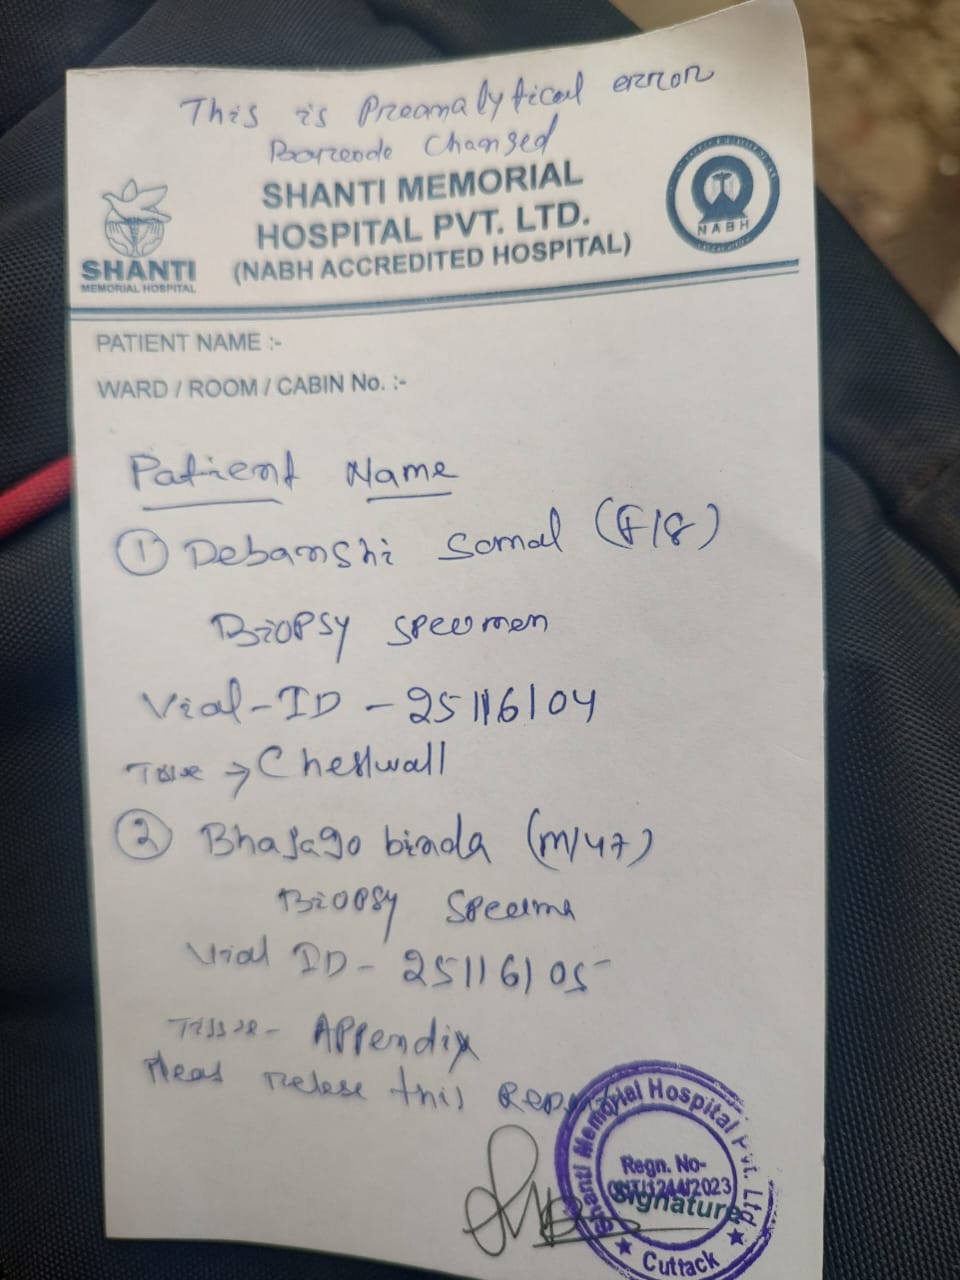 This is Preanalytical error
Barcode Changed
SHANTI MEMORIAL
HOSPITAL PVT. LTD.
(NABH ACCREDITED HOSPITAL)
SHANTI
MEMORIAL HOSPITAL
NABH
PATIENT NAME :-
WARD / ROOM / CABIN No. :-
Patient Name
① Debanshi Samal (F/8)
Biopsy specimen
Vial-ID - 25116104
Tissue → Chestwall
② Bhasago binda (M/47)
Biopsy Specimen
Vial ID - 25116105
Tissue - Appendix
Pleas relese this Report
Shanti Memorial Hospital Pvt. Ltd.
Regn. No-
/1244/2023
Signature
★ Cuttack ★